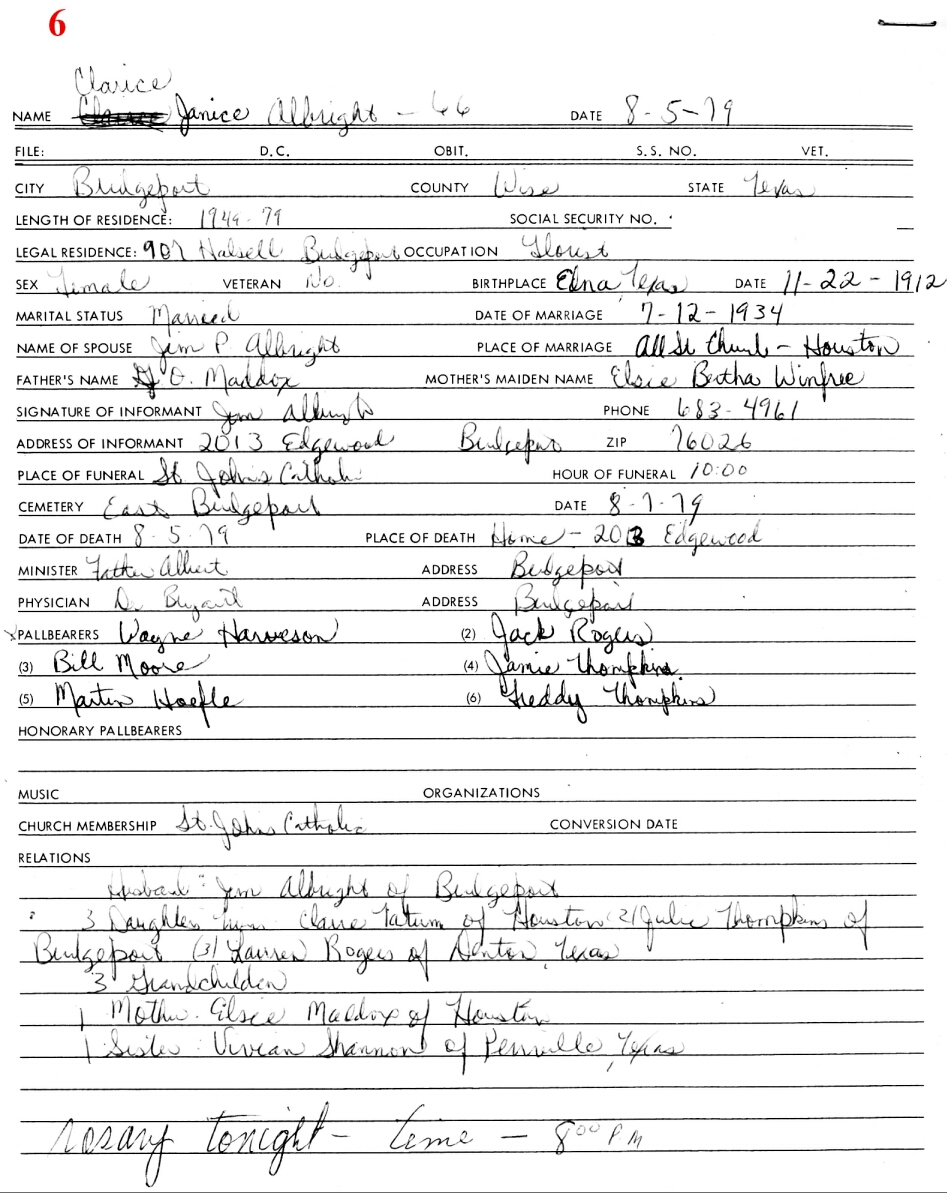 6
Clarice
NAME Janice Albright - 66 DATE 8-5-79
FILE: D.C. OBIT. S.S. NO. VET.
CITY Bridgeport COUNTY Wise STATE Texas
LENGTH OF RESIDENCE: 1949-79 SOCIAL SECURITY NO.
LEGAL RESIDENCE: 907 Halsell Bridgeport OCCUPATION Florist
SEX Female VETERAN No. BIRTHPLACE Edna, Texas DATE 11-22-1912
MARITAL STATUS Married DATE OF MARRIAGE 7-12-1934
NAME OF SPOUSE Jim P. Albright PLACE OF MARRIAGE All St Church - Houston
FATHER'S NAME O. Maddox MOTHER'S MAIDEN NAME Elsie Bertha Winfree
SIGNATURE OF INFORMANT Jim Albright PHONE 683-4961
ADDRESS OF INFORMANT 2013 Edgewood Bridgeport ZIP 76026
PLACE OF FUNERAL St John's Catholic HOUR OF FUNERAL 10:00
CEMETERY East Bridgeport DATE 8-7-79
DATE OF DEATH 8-5-79 PLACE OF DEATH Home - 2013 Edgewood
MINISTER Father Albert ADDRESS Bridgeport
PHYSICIAN Dr Bryant ADDRESS Bridgeport
PALLBEARERS Wayne Harveson (2) Jack Rogers
(3) Bill Moore (4) Jamie Thompkins
(5) Martin Hoefle (6) Freddy Thompkins
HONORARY PALLBEARERS
MUSIC ORGANIZATIONS
CHURCH MEMBERSHIP St. Johns Catholic CONVERSION DATE
RELATIONS
Husband: Jim Albright of Bridgeport
3 Daughters Claire Tatum of Houston (2) Julie Thompkins of
Bridgeport (3) Lauren Rogers of Denton, Texas
3 Grandchildren
1 Mother. Elsie Maddox of Houston
1 Sister: Vivian Shannon of Texas
rosary tonight - time - 8:00 P.M